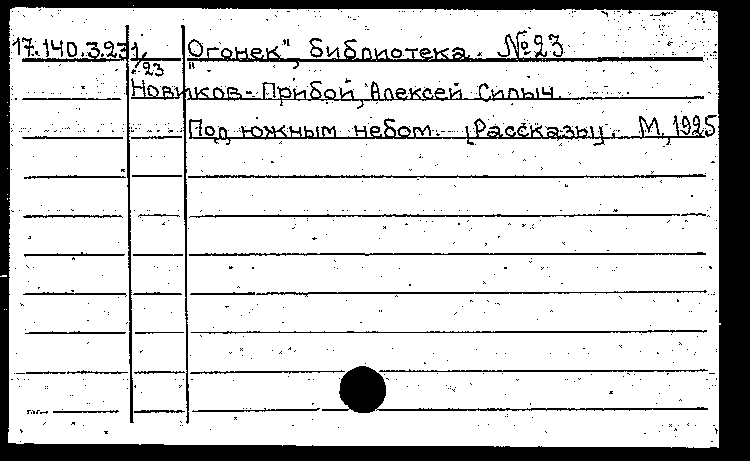 17.140.3.231/23 "Огонек", библиотека. №23
Новиков-Прибой, Алексей Силыч.
Под южным небом. [Рассказы]. М, 1925